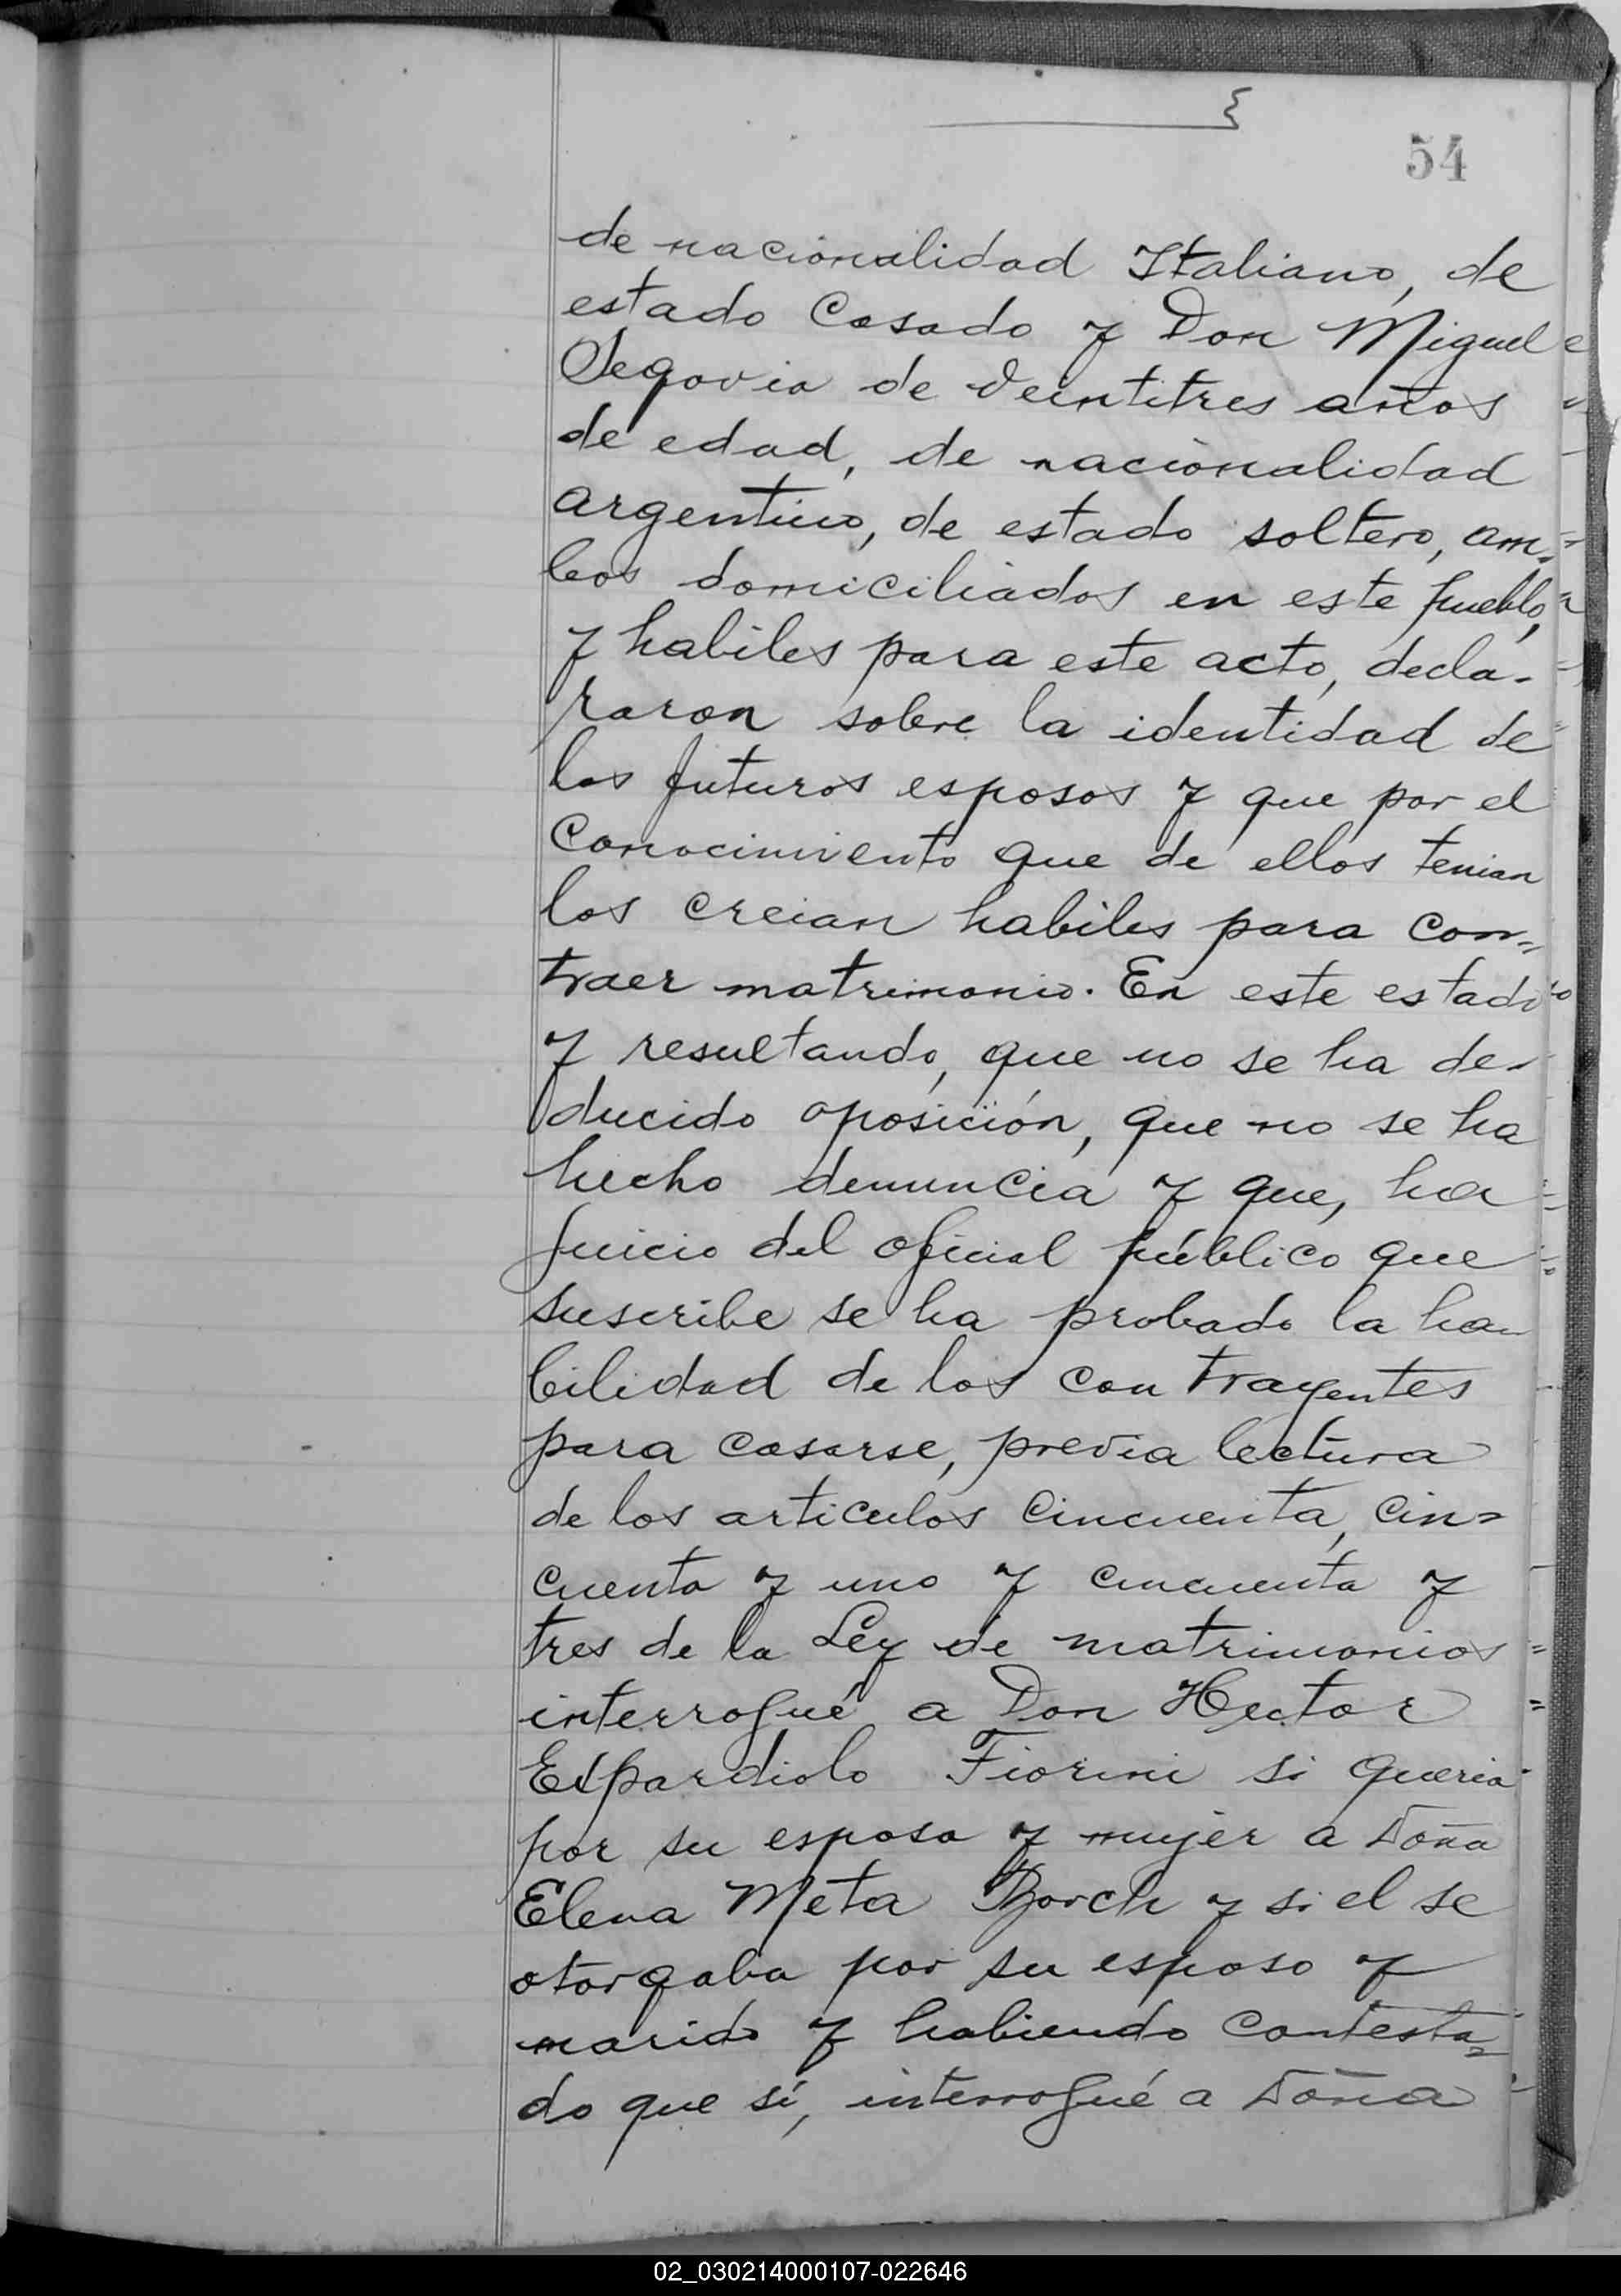 54
de nacionalidad Italiano, de
estado Casado y Don Miguel
Segovia de Veintitres años
de edad, de nacionalidad
argentino, de estado soltero, am=
bos domiciliados en este pueblo,
y habiles para este acto, decla-
raron sobre la identidad de
los futuros esposos y que por el
conocimiento que de ellos tenian
los creian habiles para con=
traer matrimonio. En este estado
y resultando, que no se ha de-
ducido oposición, que no se ha
hecho denuncia y que, ha
juicio del oficial público que
suscribe se ha probado la ha-
bilidad de los contrayentes
para casarse, previa lectura
de los articulos cincuenta, cin=
cuenta y uno y cincuenta y
tres de la Ley de matrimonios
interrogué a Don Hector
Fiorini si queria
por su esposa y mujer a Doña
Elena Meta Borch y si el se
otorgaba por su esposo y
marido y habiendo contesta=
do que sí, interrogué a Doña
02_030214000107-022646